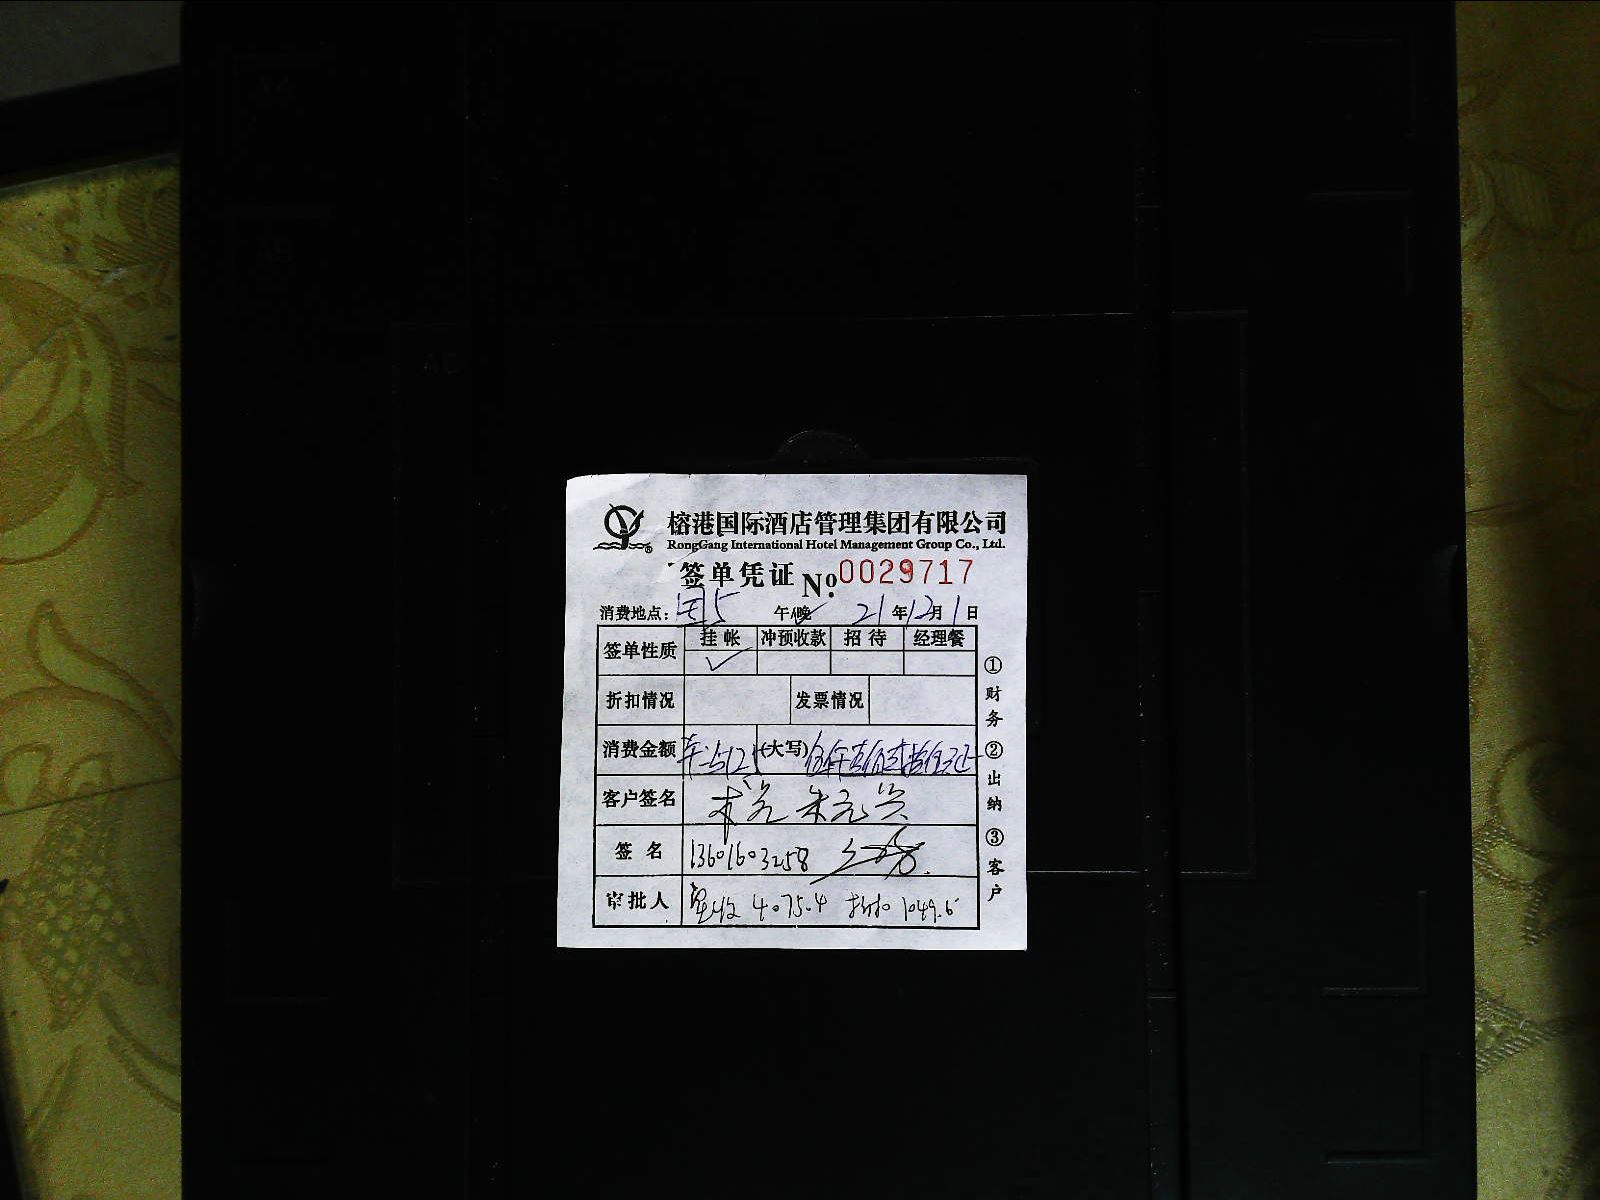 榕港国际酒店管理集团有限公司
RongGang International Hotel Management Group Co., Ltd.
签单凭证 Nº: 0029717
消费地点: 国5 午/晚 21年12月1日
签单性质 挂帐 冲预收款 招待 经理餐
✓
折扣情况 发票情况
消费金额 5125 (大写) 伍仟壹佰贰拾伍元正
客户签名 朱元兴
签名 13601603258
审批人 实收 4075.4 折扣 1049.6
①财务 ②出纳 ③客户